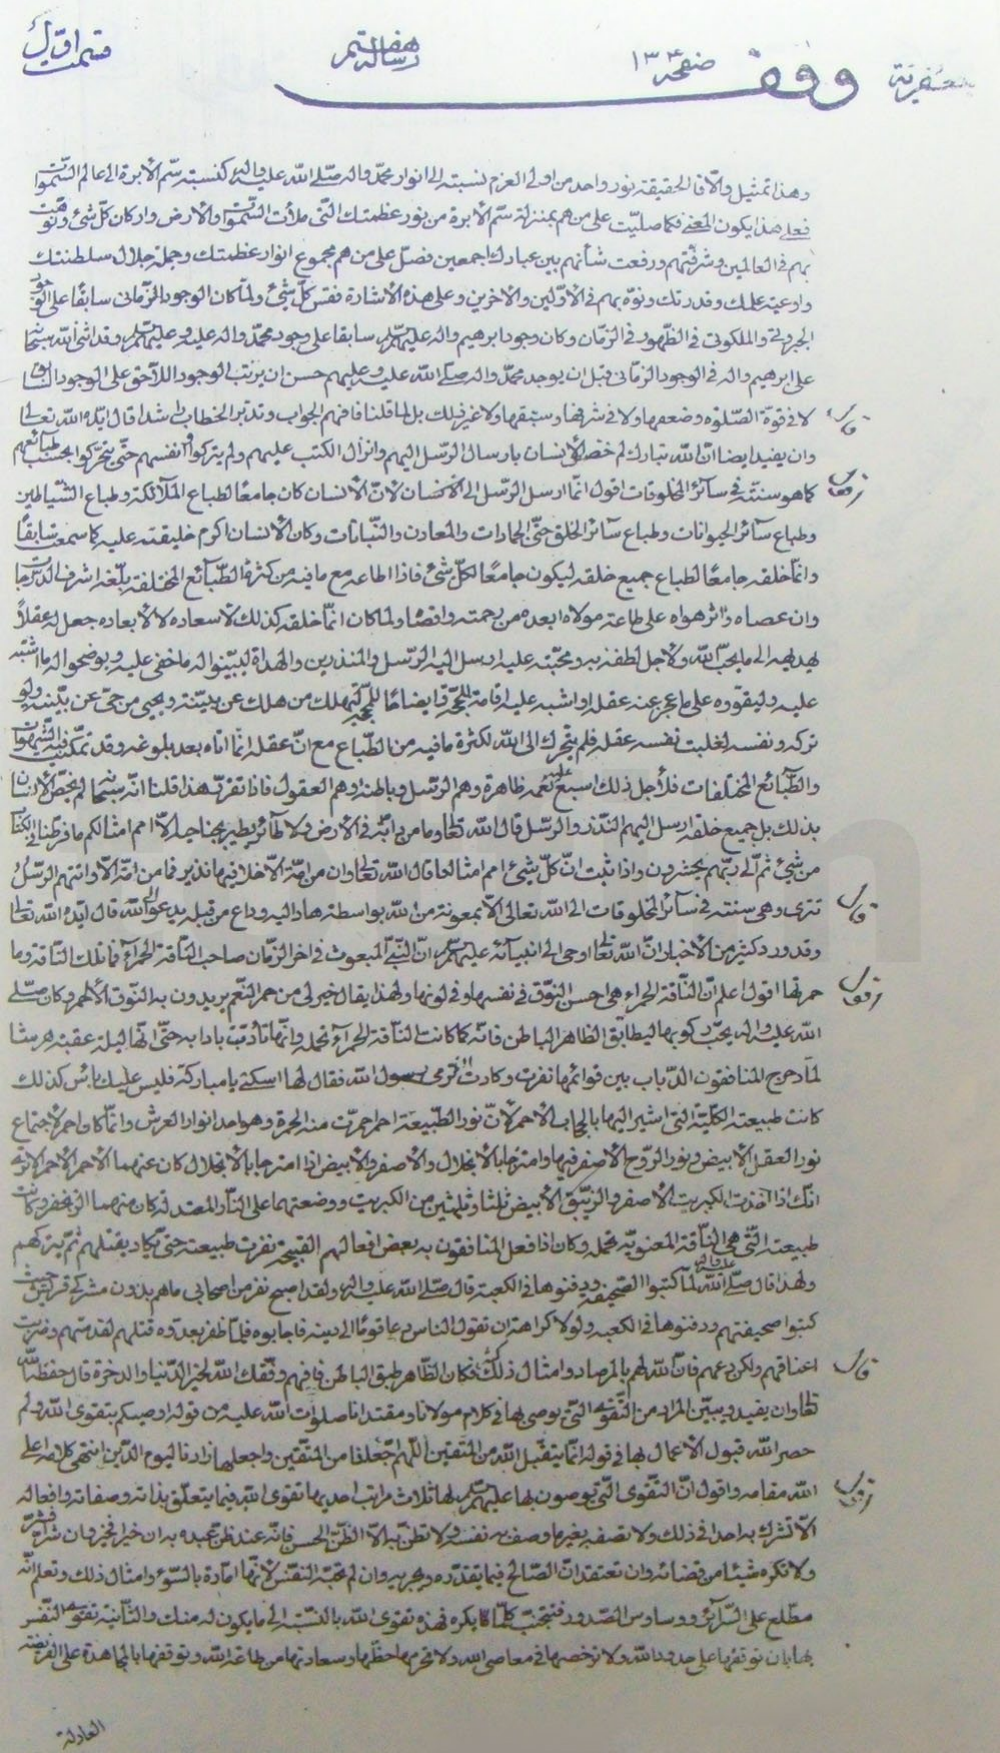 قسمت اول رسالة هفتم صفحه ۱۳۴ جعفریة
وقف
وهذا تمثيل والّا فالحقيقة نور واحد من اولى العزم نسبته الى انوار محمّد واله صلّى الله عليه واله كنسبة سمّ الأبرة الى عالم السّموات
فعلى هذا يكون المعنى فكما صليّت على من هم بمنزلة سمّ الأبرة من نور عظمتك الّتى ملأت السّموات والأرض واركان كلّ شئ ونوّهت
بهم فى العالمين وشرّفتهم ورفعت شأنهم بين عبادك اجمعين فصلّ على من هم مجموع انوار عظمتك وجملة جلال سلطنتك
واوعية علمك وقدرتك ونوّه بهم فى الأوّلين والاخرين وعلى هذه الأشارة فقس كلّ شئ ولمّا كان الوجود الزّمانى سابقًا على الوجود
الجبروتى والملكوتى فى الظّهور فى الزّمان وكان وجود ابرهيم واله عليهم السّلم سابقا على وجود محمّد واله عليه وعليهم السّلم وقد اثنى الله سبحانه
على ابرهيم واله فى الوجود الزمانى قبل ان يوجد محمّد واله صلّى الله عليه وعليهم حسن ان يرتّب الوجود اللاّحق على الوجود السّابق
لا فى قوة الصّلوة وضعفها ولا فى شرفها وسبقها ولا غير ذلك بل لما قلنا فافهم الجواب وتدبّر الخطاب راشدا قال ايّده الله تعالى
وان يفيد ايضا انّ الله تبارك لم خصّ الأنسان بارسال الرّسل اليهم وانزال الكتب عليهم ولم يتركوا وانفسهم حتّى يتحرّكوا بحسب طبائعهم
كما هو سنته فى سائر المخلوقات اقول انّما ارسل الرّسل الى الأنسان لأنّ الأنسان كان جامعًا لطباع الملآئكة وطباع الشّياطين
وطباع سائر الحيوانات وطباع سائر الخلق حتّى الجمادات والمعادن والنّباتات وكان الأنسان اكرم خليقته عليه كما سمعت سابقًا
وانّما خلقه جامعًا لطباع جميع خلقه ليكون جامعًا لكلّ شئ فاذا اطاعه مع ما فيه من كثرة الطّبآئع المختلفة بلّغه اشرف الدّرجات
وان عصاه واثر هواه على طاعة مولاه ابعده من رحمته واقصاه ولمّا كان انّما خلقه كذلك لاسعاده لا لأبعاده جعل له عقلاً
يهديه الى ما يحبّ الله ولأجل لطفه به ومحبّته عليه ارسل اليه الرّسل والمنذرين والهداة ليبيّنوا له ما خفى عليه ويوضحوا له ما اشتبه
عليه وليقوّوه على ما عجز عنه عقله او اشبه عليه اقامة للحجّة وايضاحًا للمحجّة ليهلك من هلك عن بيّنة ويحيى من حىّ عن بيّنة ولو
تركه ونفسه لغلبت نفسه عقله فلم يتحرّك الى الله لكثرة ما فيه من الطّباع مع انّ عقله انّما اتاه بعد بلوغه وقد تمكّنت فيه الشّهوات
والطّبائع المختلفات فلأجل ذلك اسبغ عليه نعمه ظاهرة وهم الرّسل وباطنة وهم العقول فاذا تقرّر هذا قلنا انّه سبحانه لم يخصّ الأنسان
بذلك بل جميع خلقه ارسل اليهم النّذر والرّسل قال الله تعالى وما من دابّة فى الأرض ولا طآئر يطير بجناحيه الاّ امم امثالكم ما فرّطنا فى الكتاب
من شئ ثمّ الى ربّهم يحشرون واذا ثبت انّ كلّ شئ امم امثالنا قال الله تعالى وان من امّة الاّ خلا فيها نذير فما من امّة الاّ واتتهم الرّسل
تترى وهى سنته فى سآئر المخلوقات الى الله تعالى الاّ بمعونة من الله بواسطة هاد اليه وداع من قبله يدعو الى الله قال ايّده الله تعالى
وقد ورد كثير من الأخبار انّ الله تعالى اوحى الى انبيآئه عليهم السّلم انّ النّبى المبعوث فى اخر الزّمان صاحب النّاقة الحمرآء فما تلك النّاقة وما
حمرتها اقول اعلم انّ النّاقة الحمراء هى احسن النّوق فى نفسها وفى لونها ولهذا يقال خير لى من حمر النّعم يريدون به النّوق الأحمر وكان صلّى
الله عليه واله يحبّ ركوبها ليطابق الظّاهر الباطن فانّه كما كانت النّاقة الحمرآء تحمله وانّها تأدّبت بادابه حتّى انّها ليلة عقبة هرشا
لمّا دحرج المنافقون الدّباب بين قوائمها نفرت وكادت ان ترمى برسول الله فقال لها اسكنى يا مباركة فليس عليك باس كذلك
كانت طبيعته الكلّية الّتى اشير اليها بالحجاب الاحمر لأنّ نور الطّبيعة احمر احمرّت منه الحمرة وهو احد انوار العرش وانّما كان احمر لاجتماع
نور العقل الأبيض ونور الرّوح الأصفر فيها وامتزجا بالأنحلال والأصفر والأبيض اذا امتزجا بالأنحلال كان عنهما الأحمر الا ترى
انّك اذا اخذت الكبريت الأصفر والزّيبق الأبيض ثلثا وثلثين من الكبريت ووضعتهما على النّار المعتدلة كان منهما الزنجفر وكانت
طبيعته الّتى هى النّاقة المعنويّة تحمله وكان اذا فعل المنافقون به بعض افعالهم القبيحة نفرت طبيعته حتّى يكاد يقتلهم ثمّ يتركهم
ولهذا قال صلّى الله عليه واله لمّا كتبوا الصّحيفة ودفنوها فى الكعبة قال صلّى الله عليه واله ولقد اصبح نفر من اصحابى ما هم بدون مشركى قريش حيث
كتبوا صحيفتهم ودفنوها فى الكعبة ولولا كراهة ان تقول الناس دعا قومًا الى دينه فاجابوه فلمّا ظفر بعدوّه قتلهم لقدّمتهم وضربت
اعناقهم ولكن دعهم فانّ الله لهم بالمرصاد وامثال ذلك فكان الظّاهر طبق الباطن فافهم وفّقك الله لخير الدّنيا والاخرة قال حفظه الله
تعالى وان يفيد ويبيّن المراد من التّقوى الّتى يوصى بها فى كلام مولانا ومقتدانا صلوات الله عليه من قوله اوصيكم بتقوى الله ولم
حصر الله قبول الأعمال بها فى قوله انّما يتقبّل الله من المتّقين اللّهمّ اجعلنا من المتّقين واجعلها زادنا ليوم الدّين انتهى كلامه اعلى
الله مقامه واقول انّ التّقوى الّتى يوصون بها عليهم السّلم لها ثلاث مراتب احديها تقوى الله فيما يتعلّق بذاته وصفاته وافعاله
الاّ تشرك به احدا فى ذلك ولا تصفه بغير ما وصف به نفسه ولا تظنّ به الاّ الظّنّ الحسن فانّه عند ظنّ عبده به ان خيرا فخير وان شرا فشرّ
ولا تكره شيئا من قضائه وان تعتقد انّ الصّالح فيما يقدّره ويجريه وان لم تحبّه النّفس لأنّها امّارة بالسّوء وامثال ذلك وتعلم انّه
مطّلع على السّرآئر ووساوس الصّدور فتجتنب كلّما يكره فهذه تقوى الله بالنّسبة الى ما يكون له منك والثّانية تقوى النّفس
بها بان توقفها على حدود الله ولا ترخّصها فى معاصى الله ولا تحرمها حظّها وسعادتها من طاعة الله وتوقفها بالمجاهدة على الفريضة
العادلة